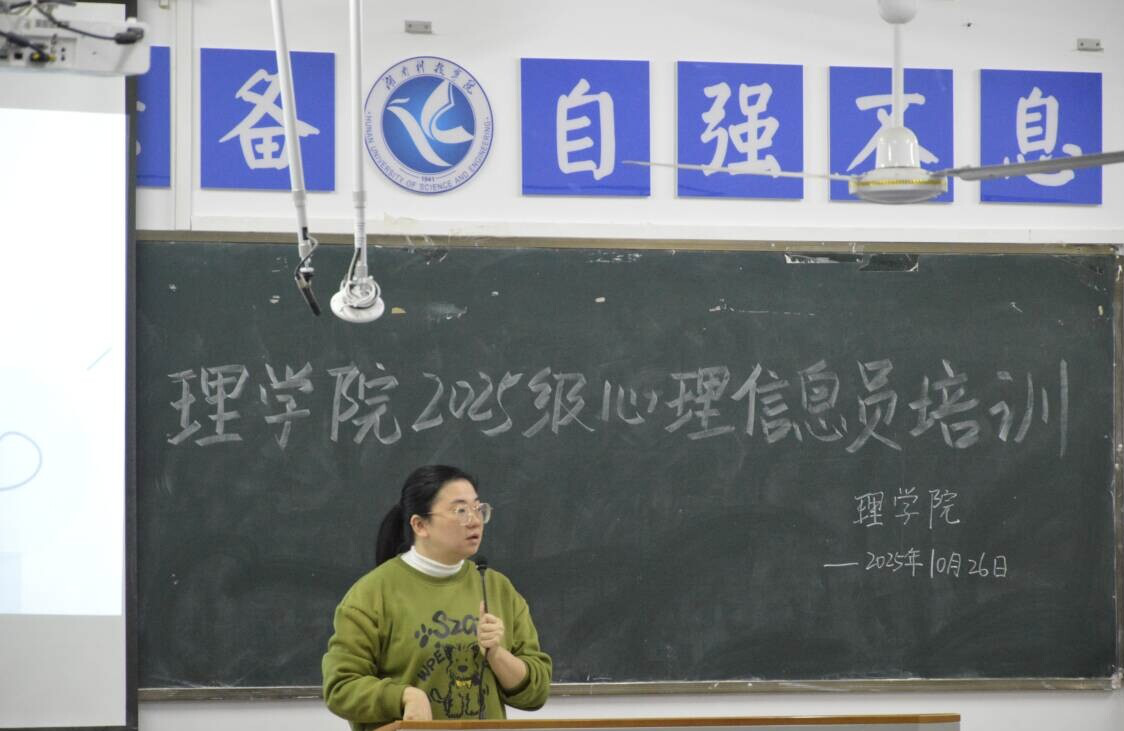 备 自强不息
湖南科技学院
HUNAN UNIVERSITY OF SCIENCE AND ENGINEERING
1941
理学院2025级心理信息员培训
理学院
—2025年10月26日
WPE